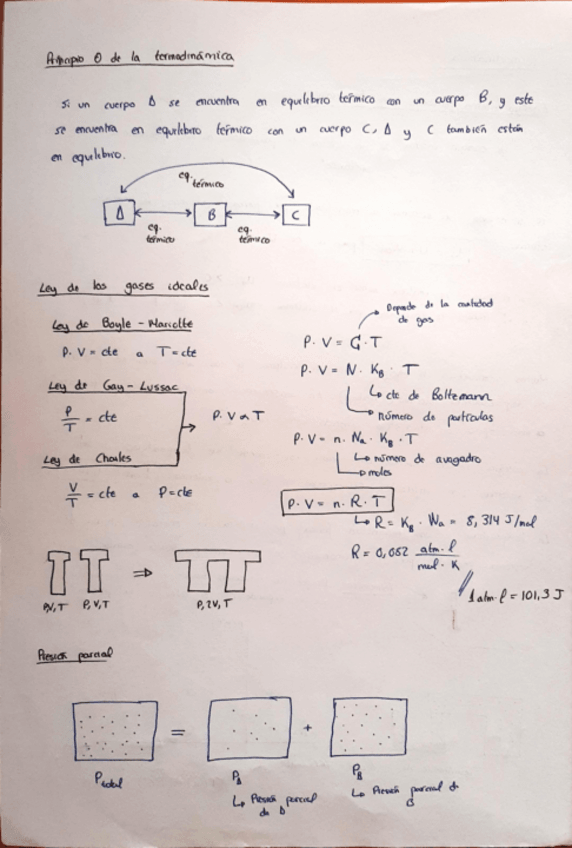 Principio 0 de la termodinámica
Si un cuerpo A se encuentra en equilibrio térmico con un cuerpo B, y este
se encuentra en equilibrio térmico con un cuerpo C, A y C también están
en equilibrio.
eq. térmico
A
B
C
eq. térmico
eq. térmico
Ley de los gases ideales
Ley de Boyle - Mariotte
P. V = cte a T = cte
Ley de Gay - Lussac
P/T = cte
P. V ∝ T
Ley de Charles
V/T = cte a P = cte
Depende de la cantidad
de gas
P. V = C · T
P. V = N · K_B · T
cte de Boltzmann
número de partículas
P. V = n · N_a · K_B · T
número de avogadro
moles
P. V = n · R · T
R = K_B · N_a = 8,314 J/mol
R = 0,082 atm · l / mol · K
1 atm · l = 101,3 J
P, V, T
P, V, T
⇒
P, 2V, T
Presión parcial
=
+
P total
P_A
Presión parcial
de A
P_B
Presión parcial de
B